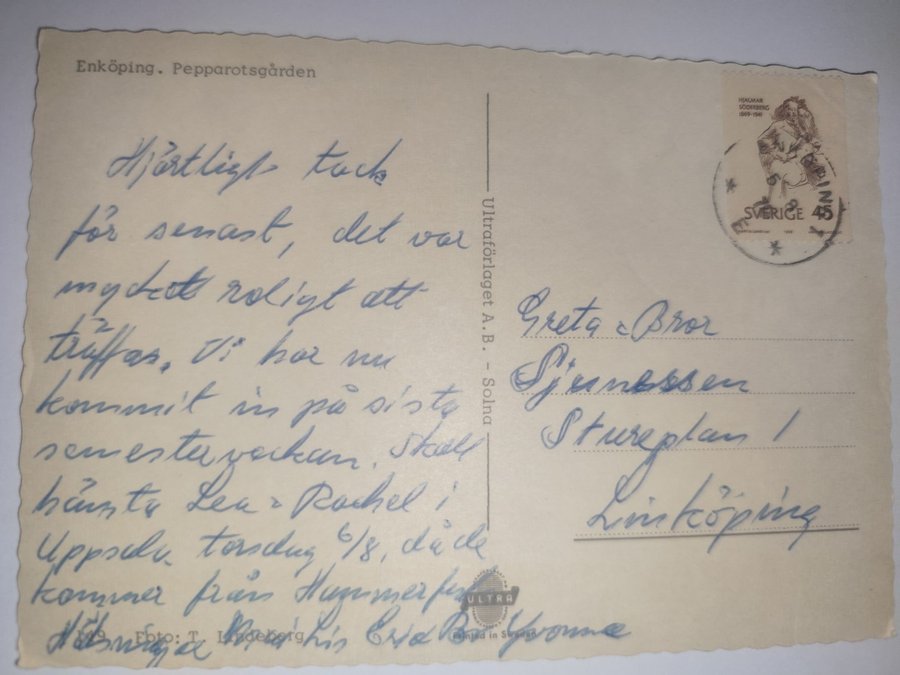 Enköping. Pepparotsgården
Hjärtligt tack
för senast, det var
mycket roligt att
träffas. Vi har nu
kommit in på sista
semesterveckan. Skall
hämta Lea & Rachel i
Uppsala torsdag 6/8, då de
kommer från Hammerfest
Hälsningar Maj-Lis Eric B. Yvonne
Foto: T. Lindeberg
Ultraförlaget A.B. - Solna
HJALMAR
SÖDERBERG
1869-1941
SVERIGE 45
Greta & Bror
Sjunessen
Stureplan 1
Linköping
ULTRA
Printed in Sweden